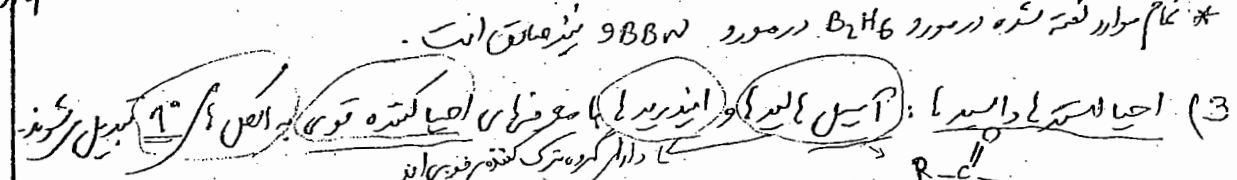 * تمام موارد گفته شده در مورد B2H6 در مورد 9BBN نیز صادق است.
3) احیا استرها و اسیدها : آسیل هالیدها و انیدریدها با معرفهای احیا کننده قوی به الکل های 1° تبدیل می‌شوند.
دارای گروه ترک کننده خوبی اند
R-C=O